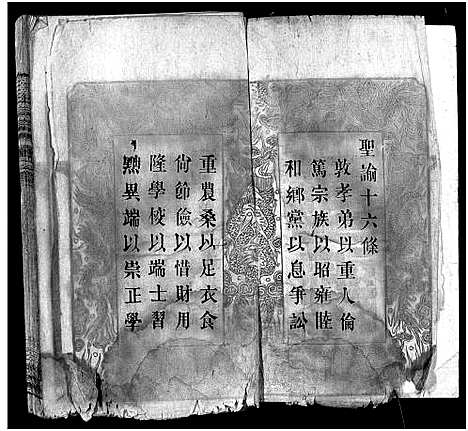 聖諭十六條
敦孝弟以重人倫
篤宗族以昭雍睦
和鄉黨以息爭訟
重農桑以足衣食
尙節儉以惜財用
隆學校以端士習
黜異端以崇正學